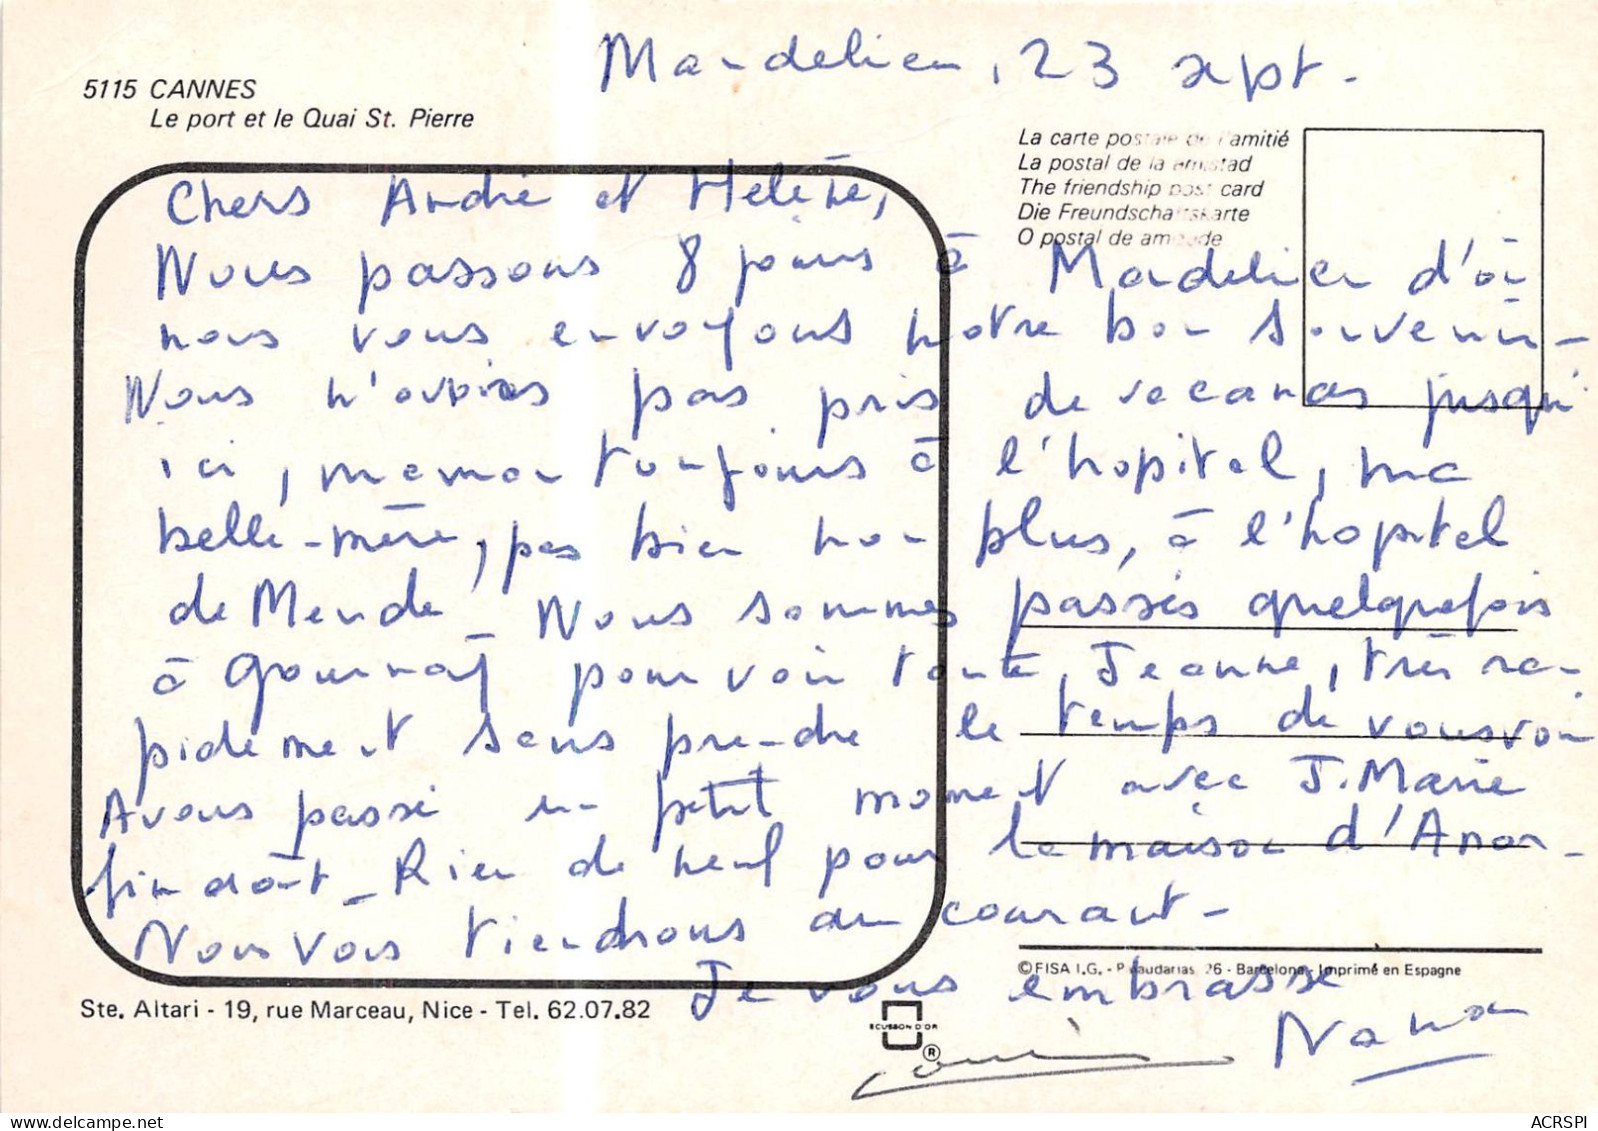 Mandelieu, 23 sept.
5115 CANNES
Le port et le Quai St. Pierre
La carte postale de l'amitié
La postal de la amistad
The friendship post card
Die Freundschaftskarte
O postal de amizade
Chers André et Helène,
Nous passons 8 jours à Mandelieu d'où
nous vous envoyons notre bon souvenir -
Nous n'avions pas pris de vacances jusqu'
ici, maman toujours à l'hopital, ma
belle-mère, pas bien non plus, à l'hopital
de Mende - Nous sommes passés quelquefois
à Gournay pour voir tante Jeanne, très ra-
pidement sans prendre le temps de vous voir
Avons passé un petit moment avec J. Marie
fin août - Rien de neuf pour la maison d'
Nous vous tiendrons au courant -
Je vous embrasse
Nana
©FISA I.G. - Palaudarias, 26 - Barcelona - Imprimé en Espagne
Ste. Altari - 19, rue Marceau, Nice - Tel. 62.07.82
ECUSSON D'OR
®
ACRSPI